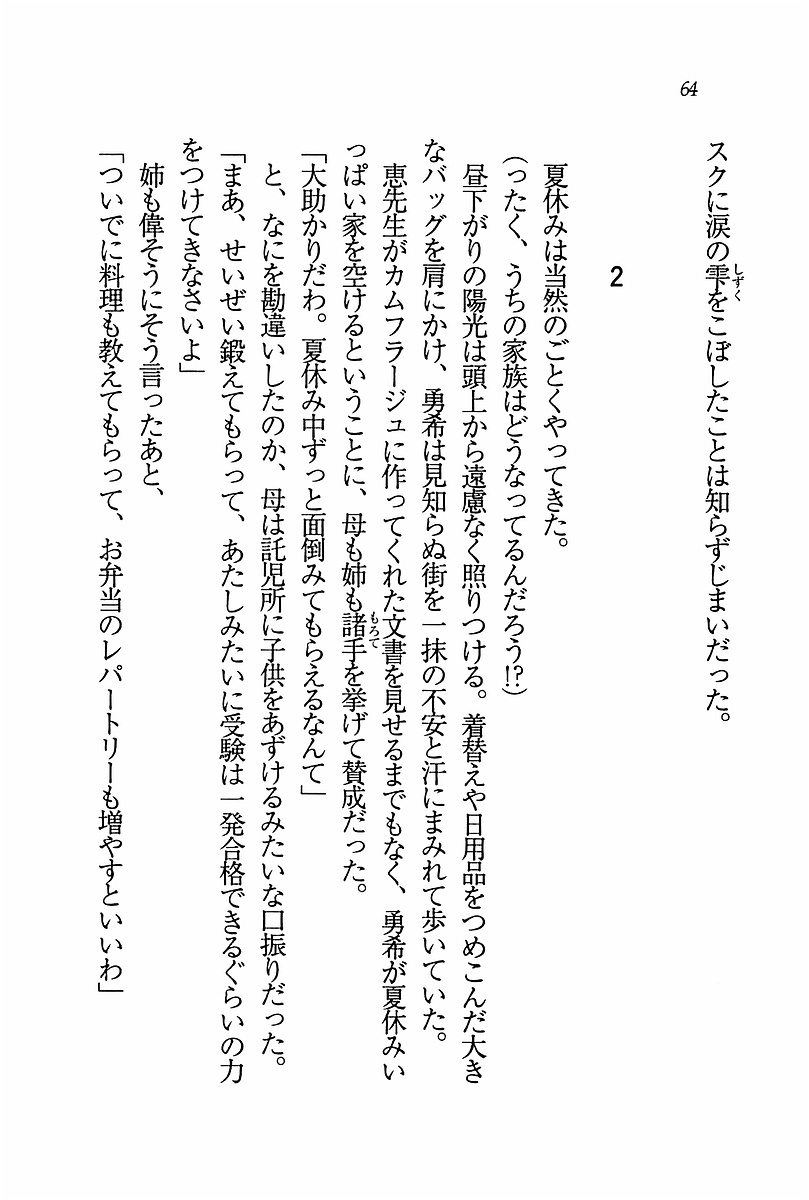 64
スクに涙の雫をこぼしたことは知らずじまいだった。
しずく
2
夏休みは当然のごとくやってきた。
（ったく、うちの家族はどうなってるんだろう!?）
昼下がりの陽光は頭上から遠慮なく照りつける。着替えや日用品をつめこんだ大き
なバッグを肩にかけ、勇希は見知らぬ街を一抹の不安と汗にまみれて歩いていた。
恵先生がカムフラージュに作ってくれた文書を見せるまでもなく、勇希が夏休みい
っぱい家を空けるということに、母も姉も諸手を挙げて賛成だった。
もろて
「大助かりだわ。夏休み中ずっと面倒みてもらえるなんて」
と、なにを勘違いしたのか、母は託児所に子供をあずけるみたいな口振りだった。
「まあ、せいぜい鍛えてもらって、あたしみたいに受験は一発合格できるぐらいの力
をつけてきなさいよ」
姉も偉そうにそう言ったあと、
「ついでに料理も教えてもらって、お弁当のレパートリーも増やすといいわ」